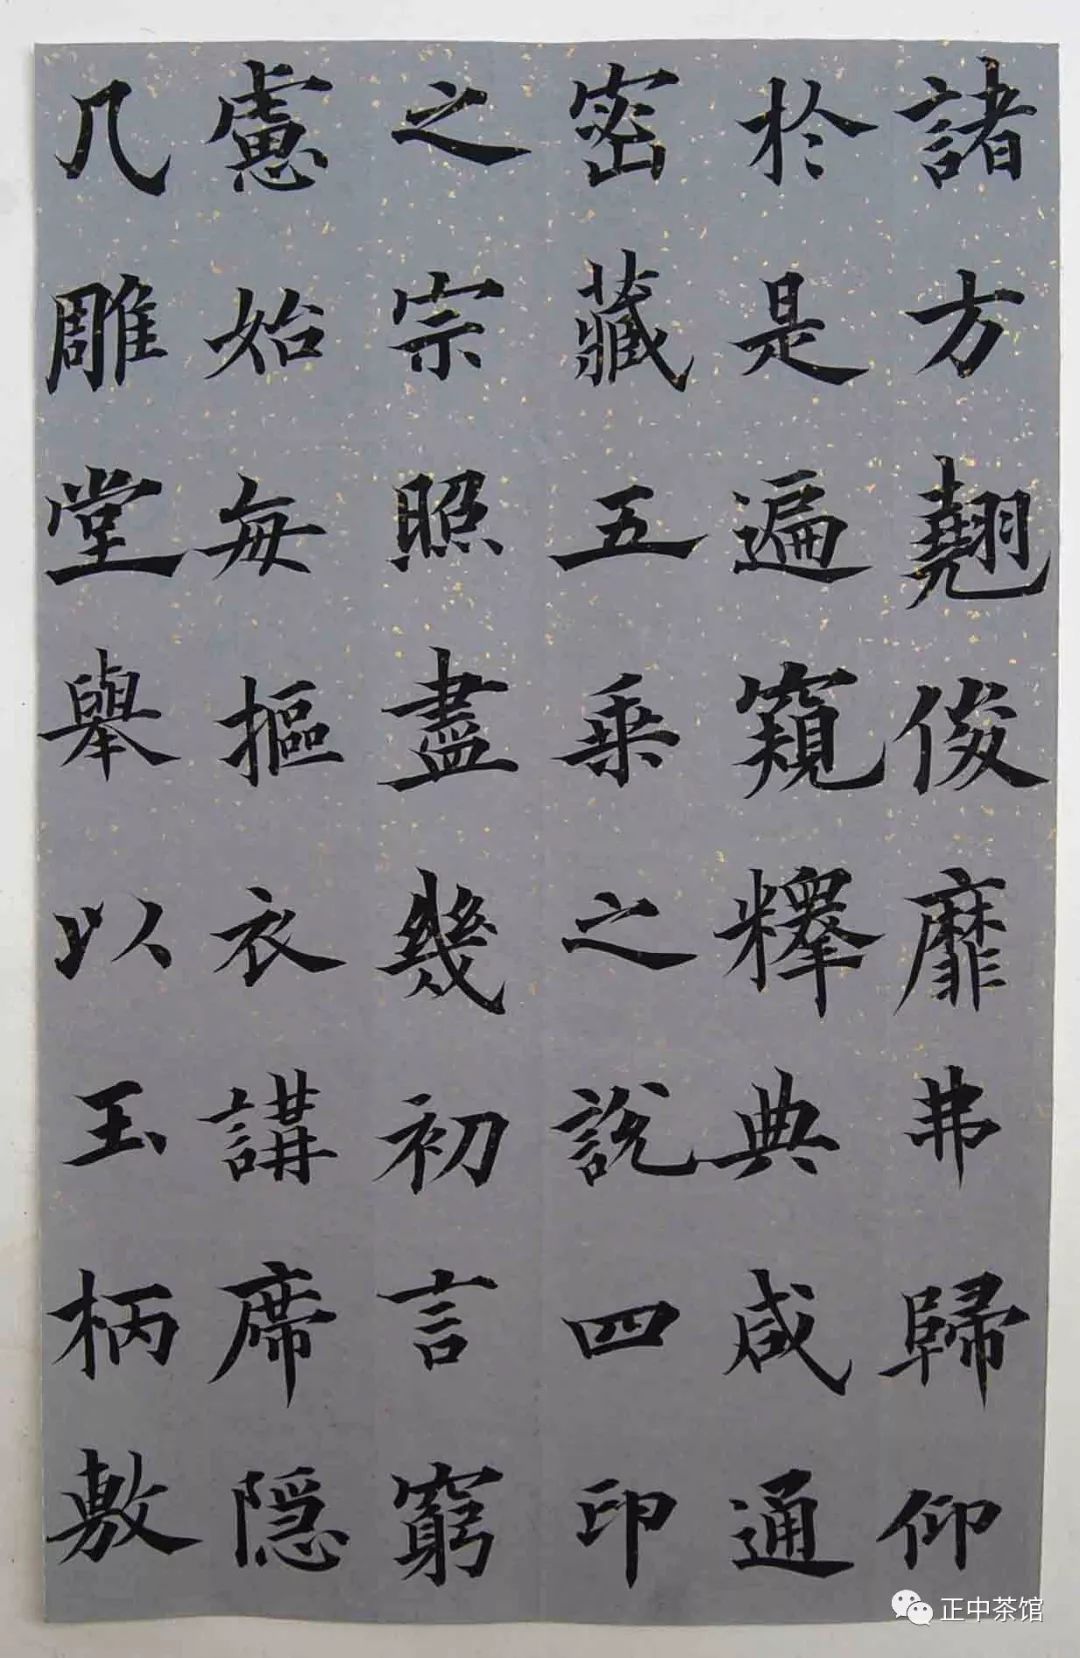 諸方翹俊靡弗歸仰
於是遍窺釋典咸通
密藏五乘之說四印
之宗照盡幾初言窮
慮始每摳衣講席隱
几雕堂舉以玉柄敷
正中茶馆